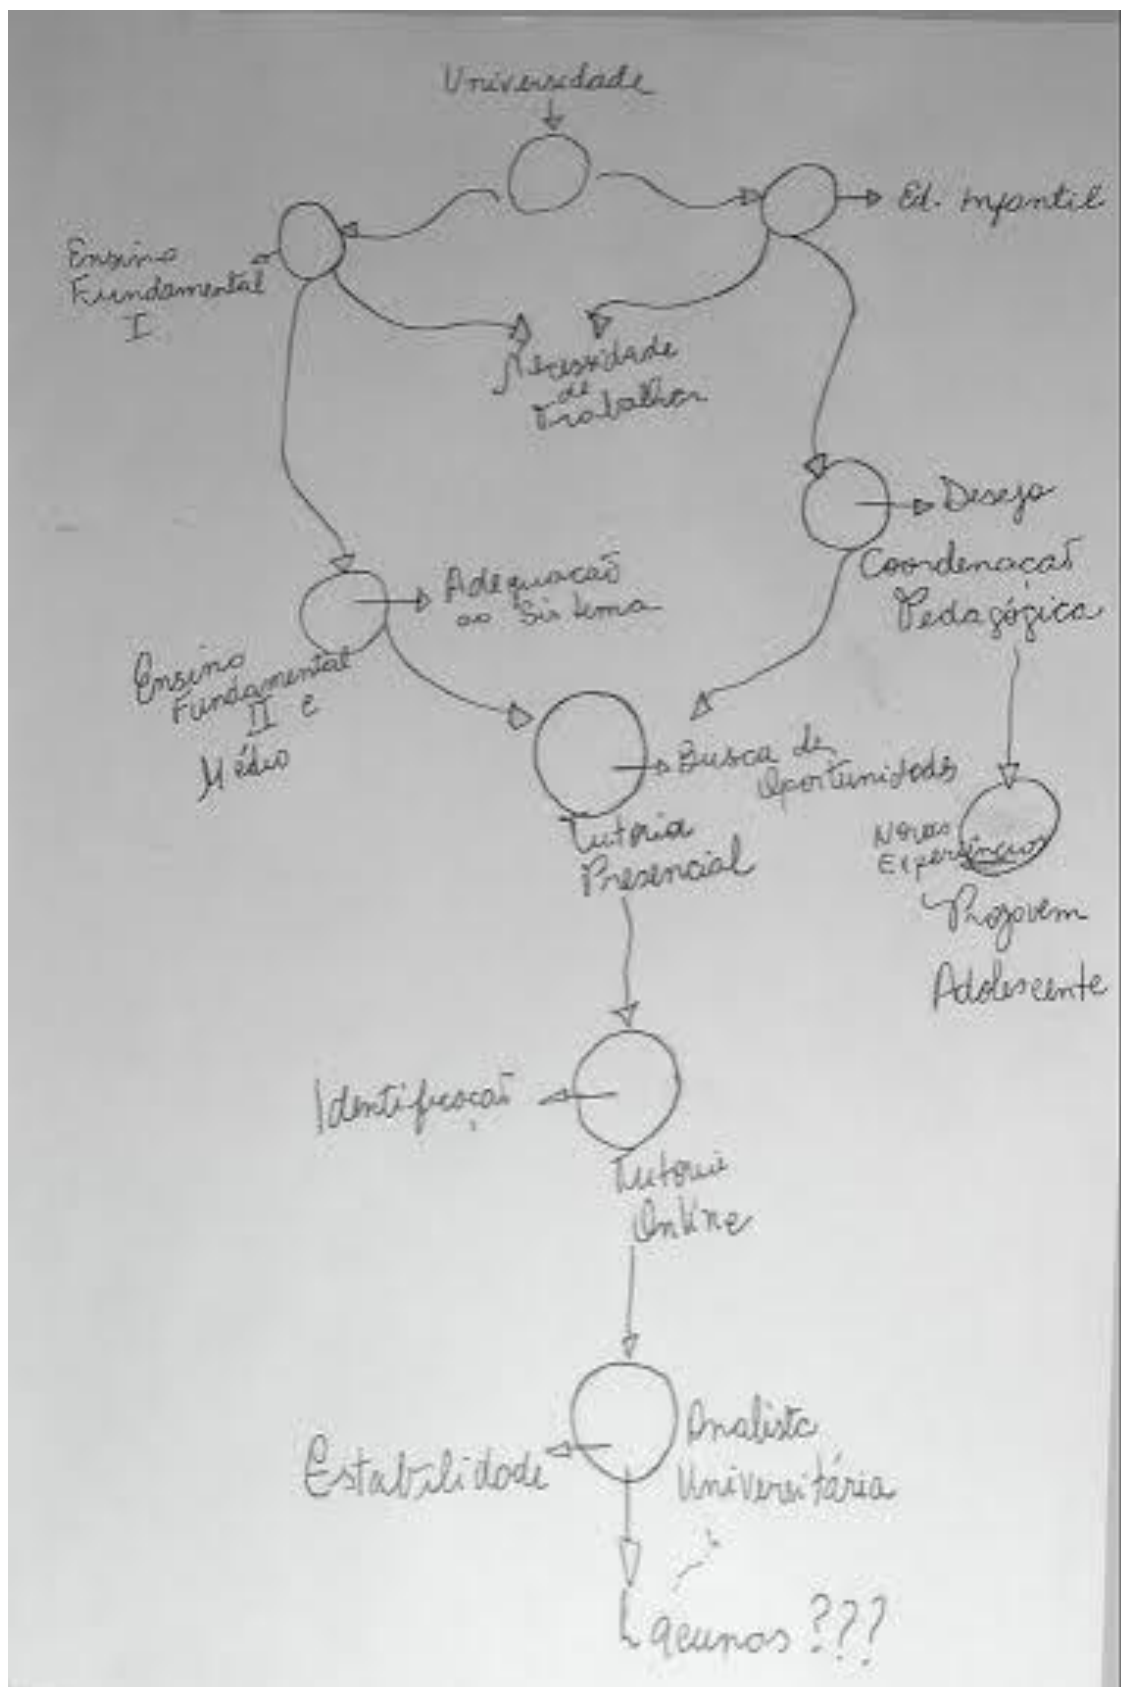 Universidade
Ed. Infantil
Ensino
Fundamental
I
Necessidade
de
Trabalhar
Deseja
Coordenação
Pedagógica
Adequação
ao Sistema
Ensino
Fundamental
II e
Médio
Busca de
Oportunidades
Tutoria
Presencial
Novas
Experiências
Projovem
Adolescente
Identificação
Tutoria
Online
Analista
Universitária
Estabilidade
Lacunas ???